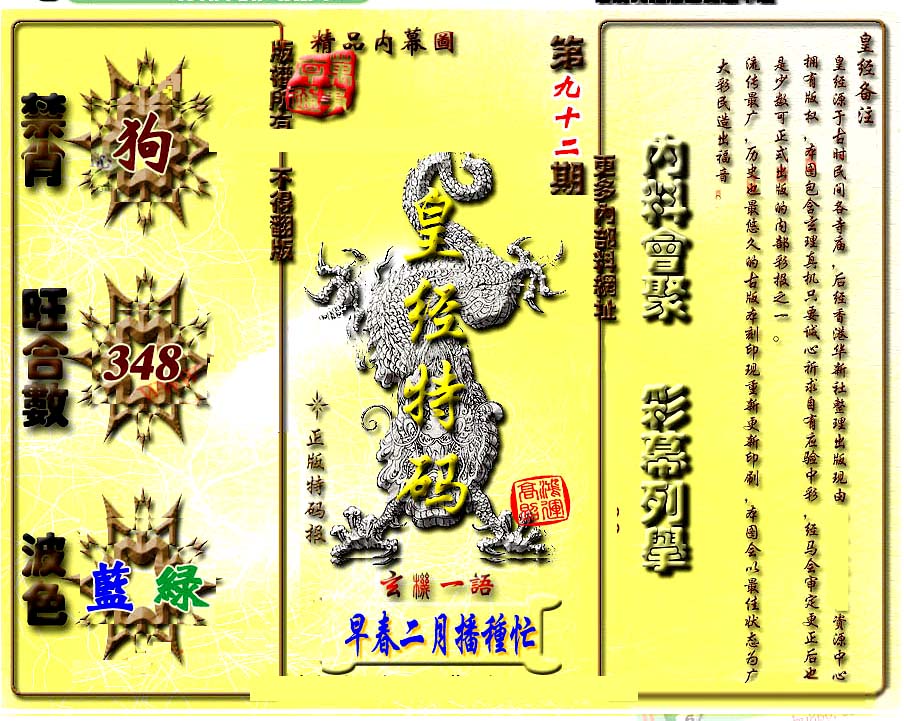 精品內幕圖
版權所有
不得翻版
第九十二期
更多內部料網址
禁肖
狗
旺合數
348
波色
藍 綠
皇经特码
正版特码报
鴻運
高照
玄機一語
早春二月播種忙
內料會聚
彩幕列學
皇经备注
皇经源于古时民间各寺庙，后经香港华新社整理出版现由 资源中心
拥有版权，本图包含玄理真机只要诚心祈求自有应验中彩，经马会审定更正后也
是少数可正式出版的内部彩报之一。
流传最广，历史也最悠久的古版本刻印现重新更新印刷，本图会以最佳状态为广
大彩民造出福音